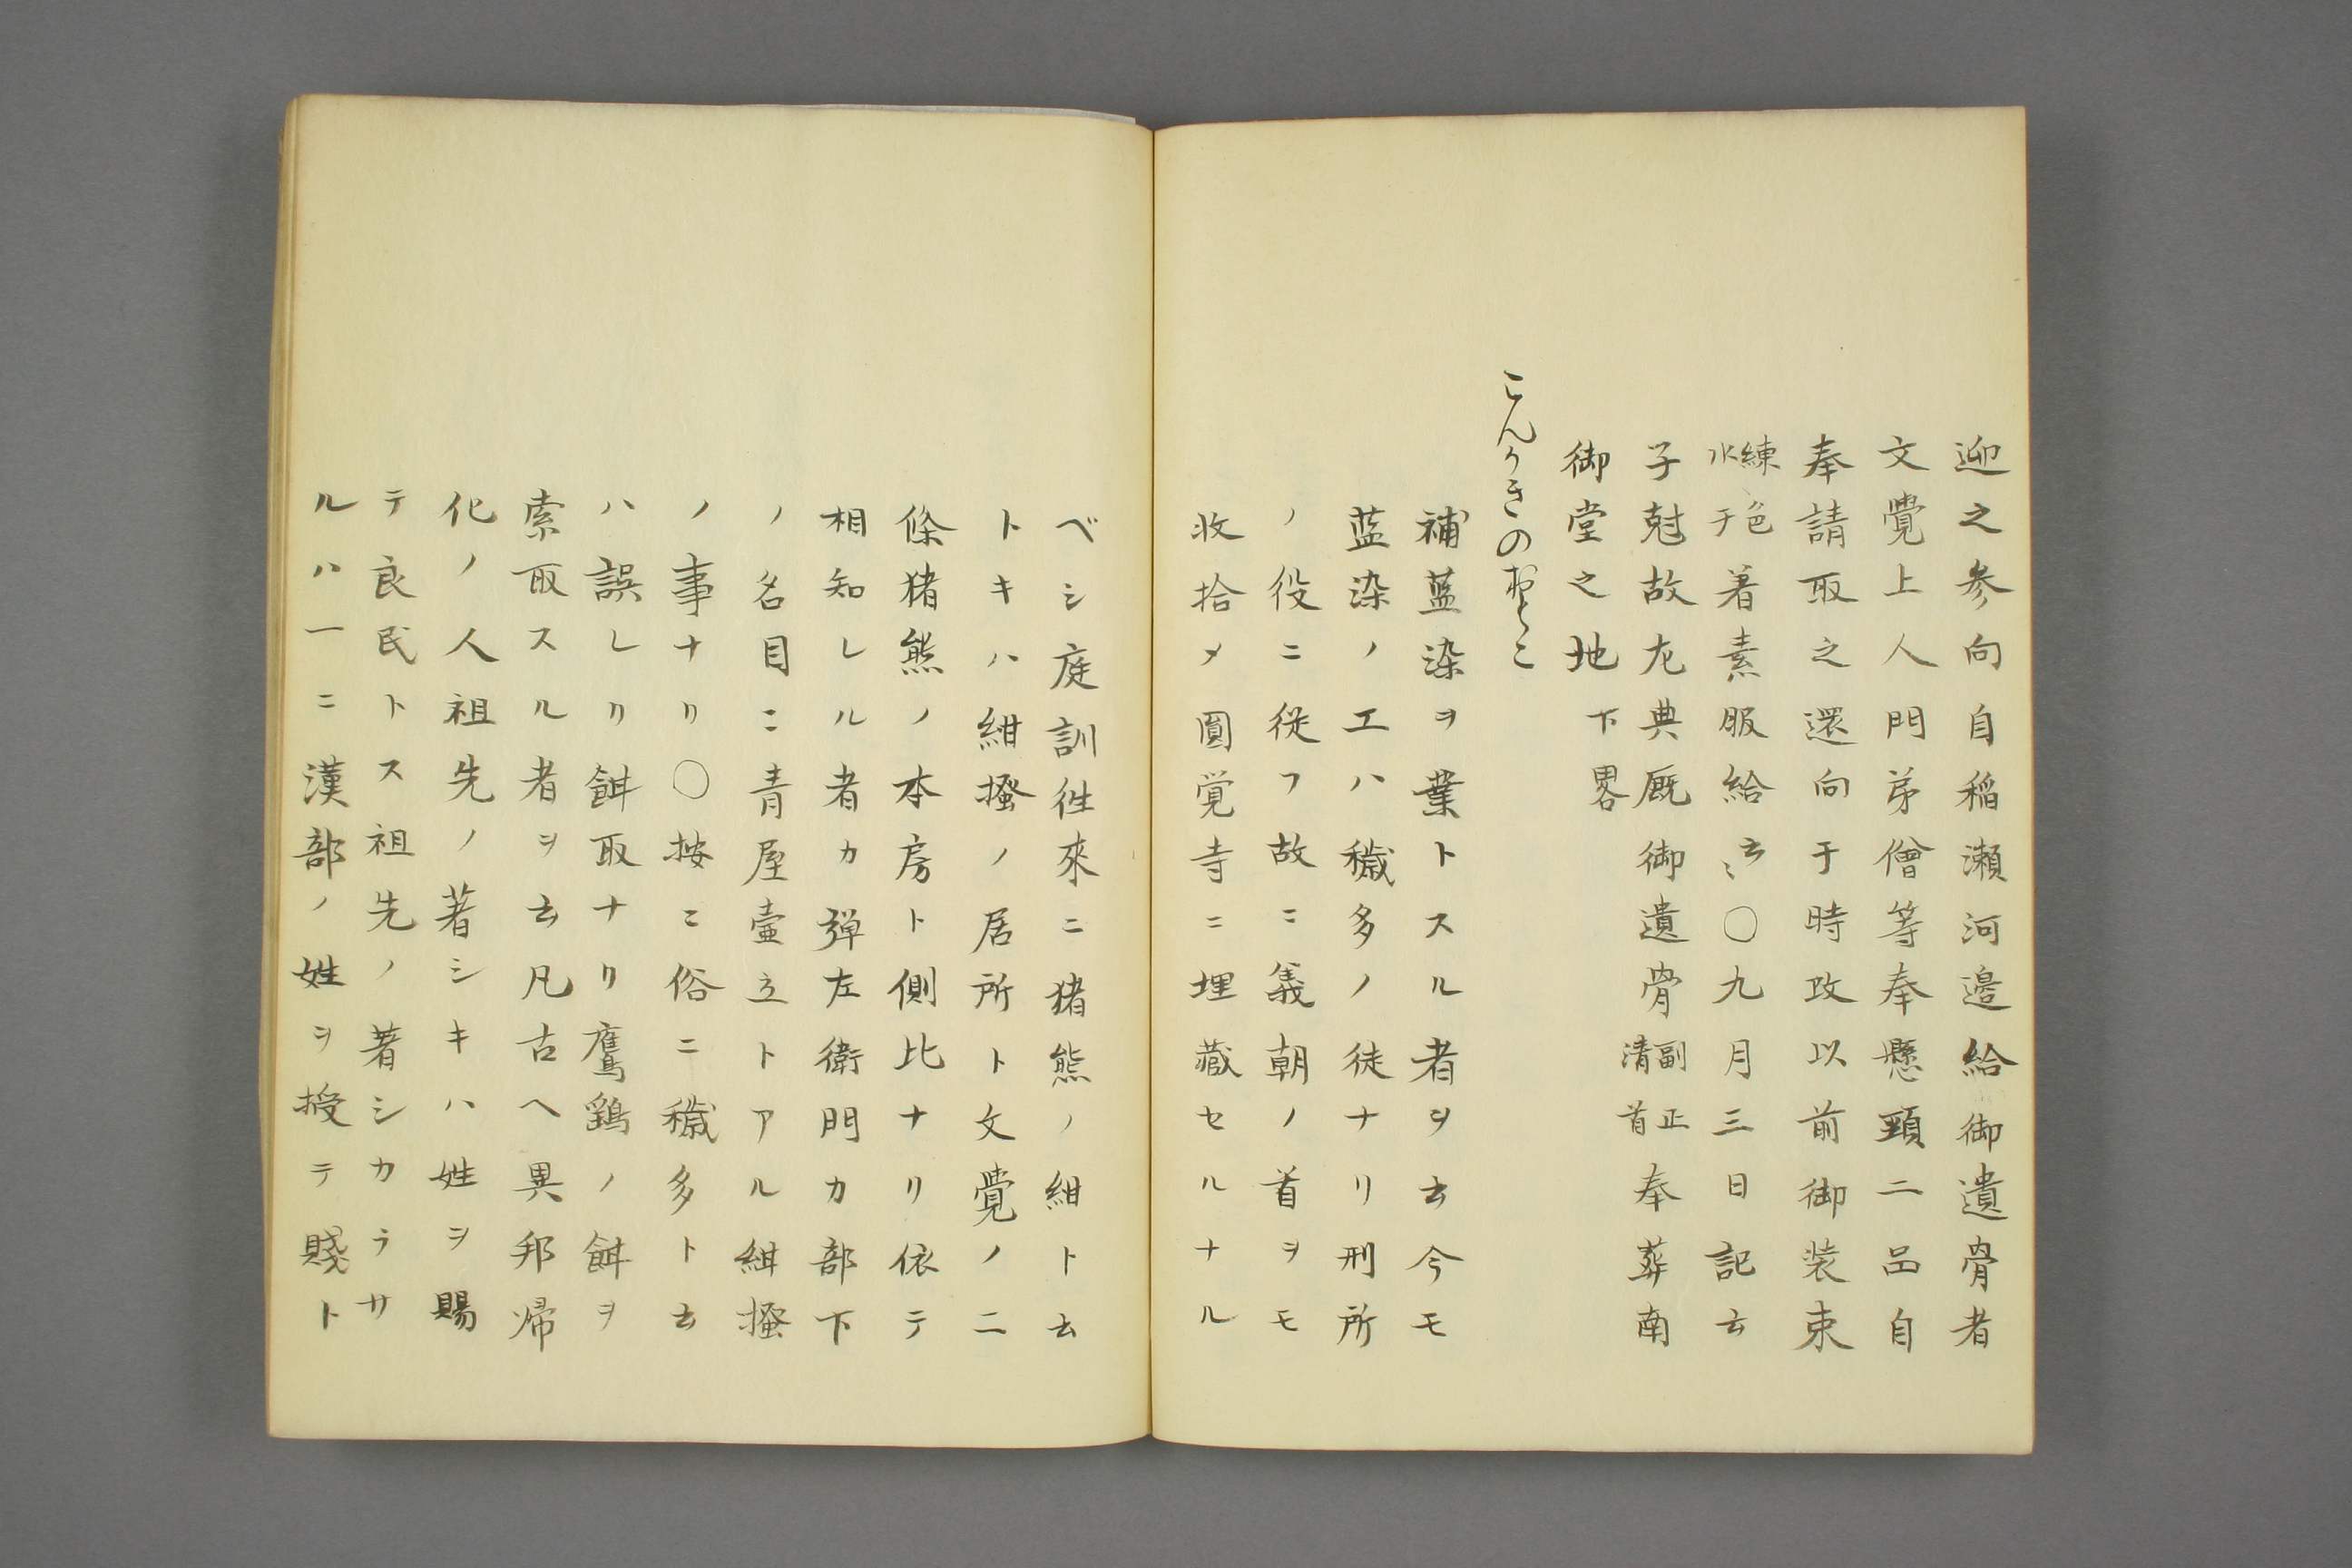 迎之参向自稲瀬河邉給御遺骨者
文覺上人門弟僧等奉懸頸二品自
奉請取之還向于時改以前御装束
練色水干著素服給云〻〇九月三日記云
子尅故左典厩御遺骨副正清首奉葬南
御堂之地下畧
こんかきのおとこ
補藍染ヲ業トスル者ヲ云今モ
藍染ノ工ハ穢多ノ徒ナリ刑所
ノ役ニ従フ故ニ義朝ノ首ヲモ
收拾メ圓覚寺ニ埋蔵セルナル
ベシ庭訓徃來ニ猪熊ノ紺ト云
トキハ紺掻ノ居所ト文覺ノ二
條猪熊ノ本房ト側比ナリ依テ
相知レル者カ弾左衛門カ部下
ノ名目ニ青屋壷立トアル紺掻
ノ事ナリ〇按ニ俗ニ穢多ト云
ハ誤レリ餌取ナリ鷹鷂ノ餌ヲ
索取スル者ヲ云凡古ヘ異邦帰
化ノ人祖先ノ著シキハ姓ヲ賜
テ良民トス祖先ノ著シカラサ
ルハ一ニ漢部ノ姓ヲ授テ賤ト